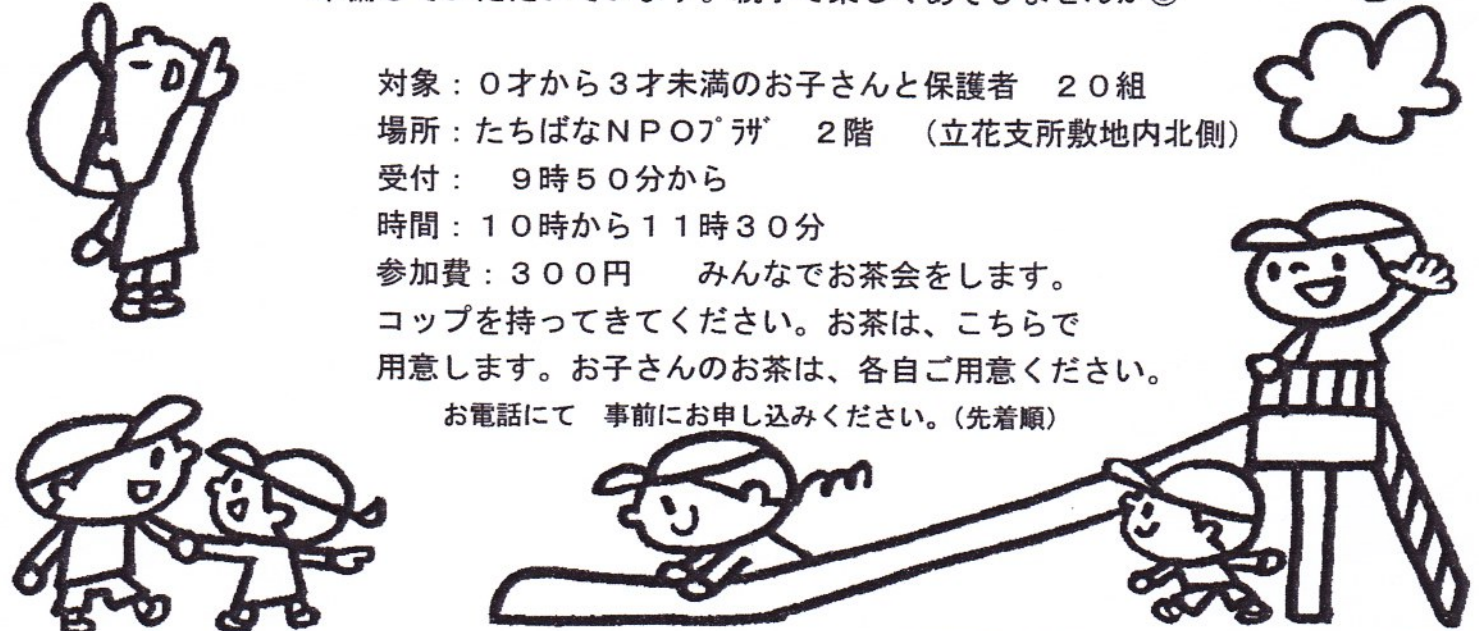 対象：０才から３才未満のお子さんと保護者　２０組
場所：たちばなＮＰＯﾌﾟﾗｻﾞ　２階　（立花支所敷地内北側）
受付：　９時５０分から
時間：１０時から１１時３０分
参加費：３００円　　みんなでお茶会をします。
コップを持ってきてください。お茶は、こちらで
用意します。お子さんのお茶は、各自ご用意ください。
お電話にて　事前にお申し込みください。（先着順）